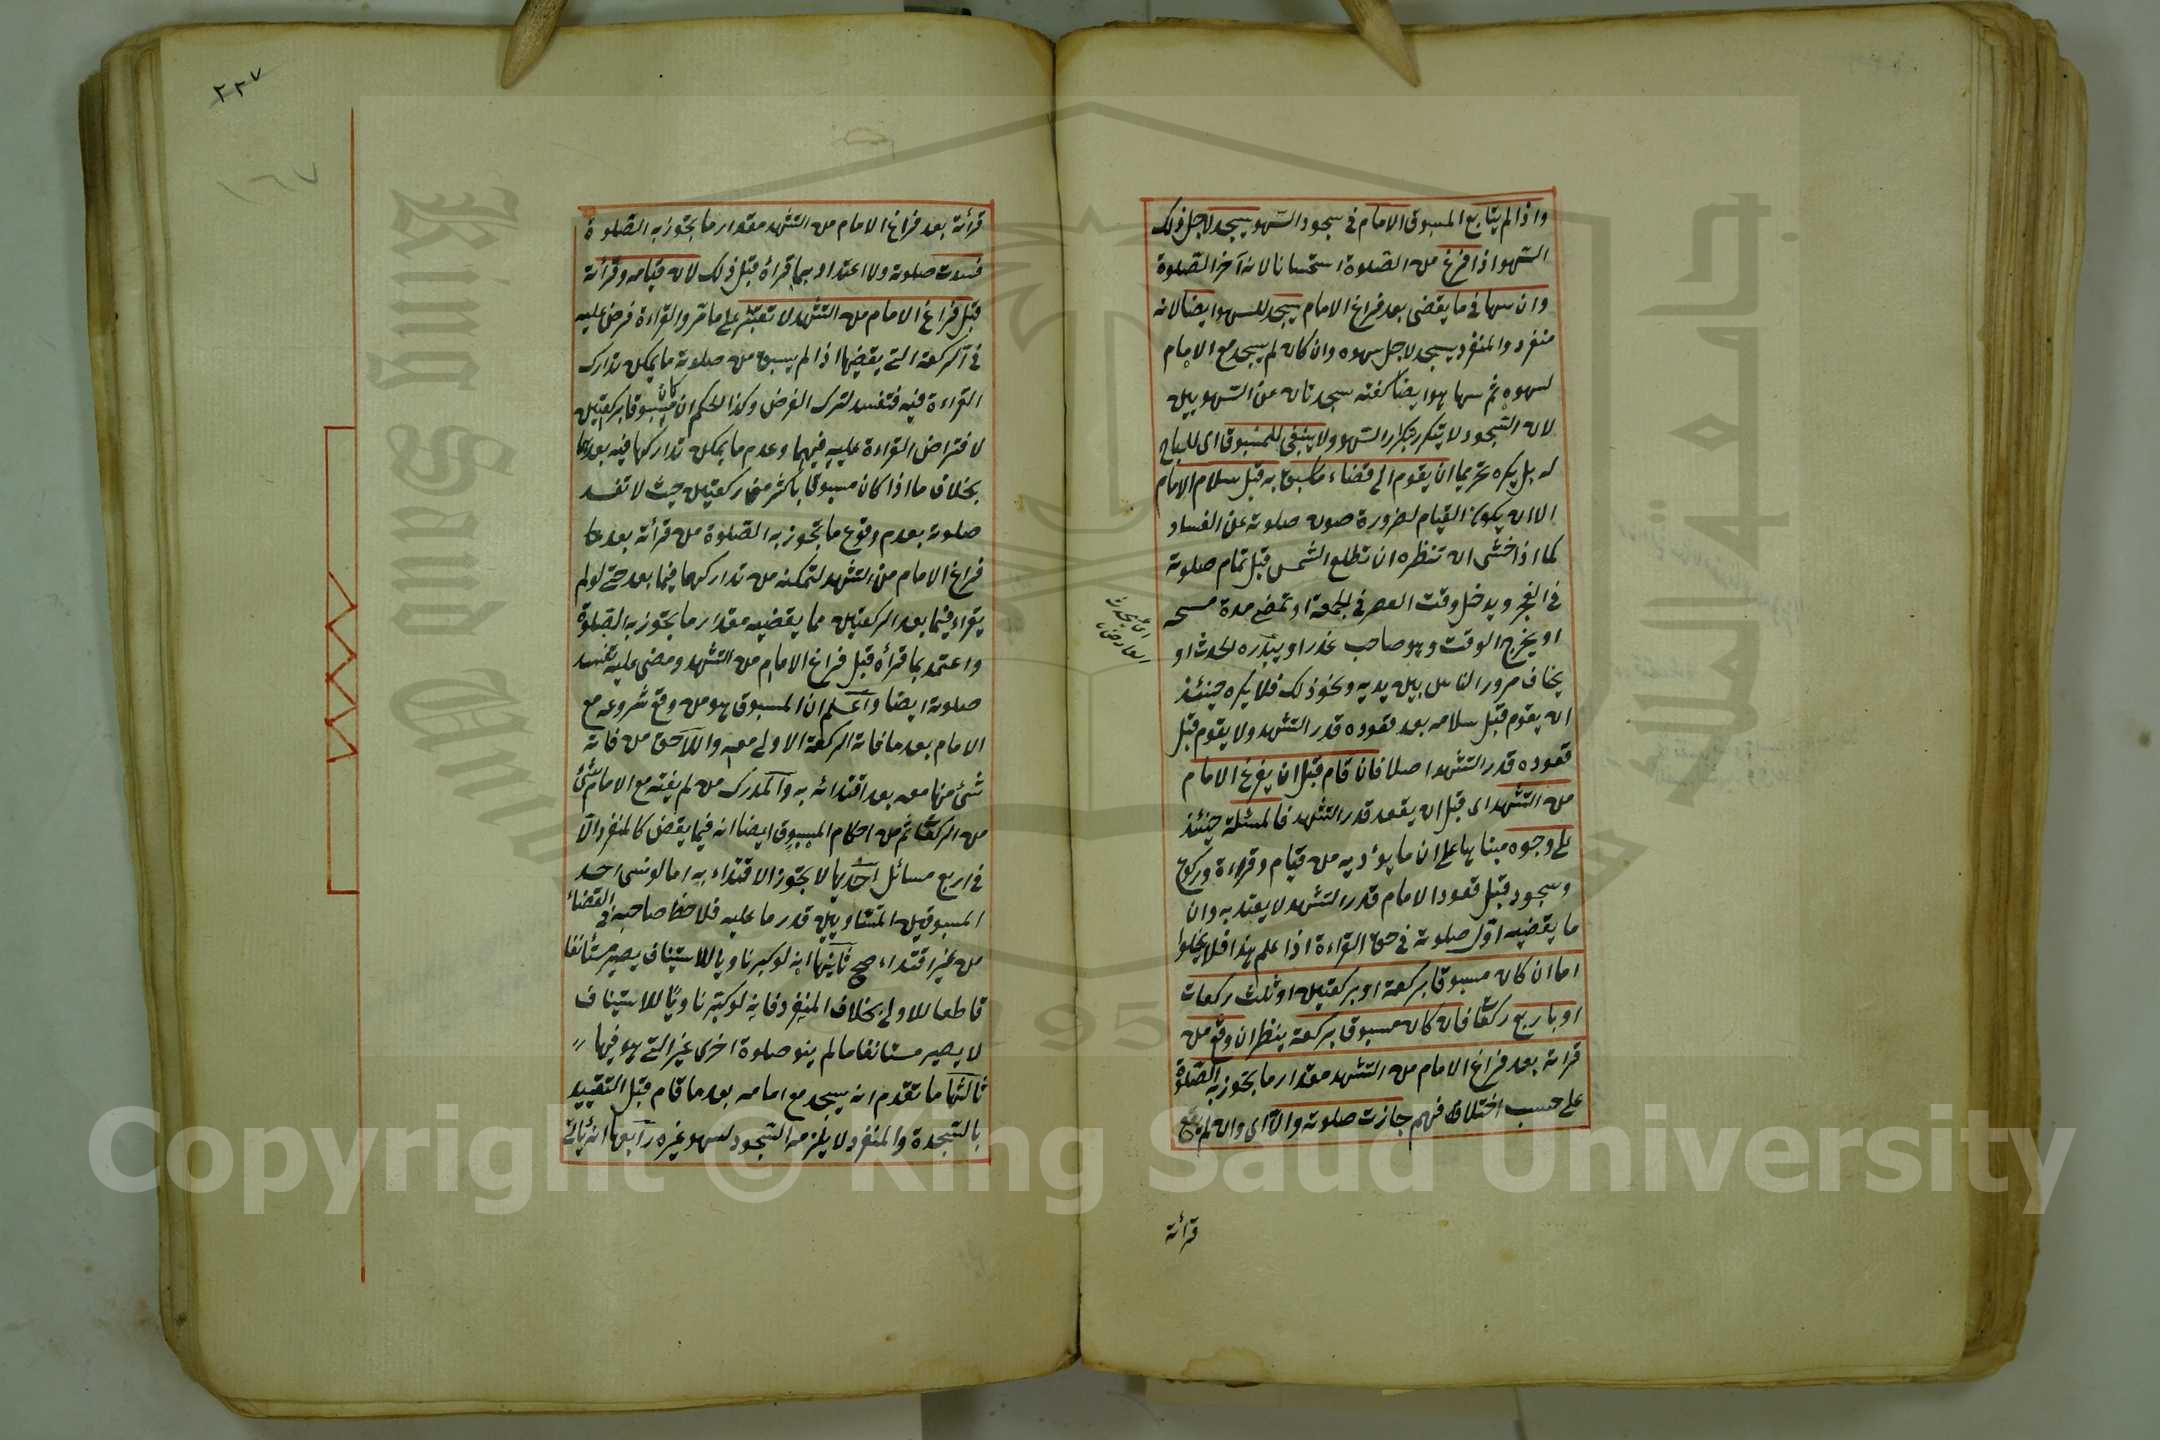 واذا لم يتابع المسبوق الامام في سجود السهو يسجد لاجل ذلك
السهو اذا فرغ من الصلوة استحسانا لانه آخر الصلوة
وان سها في ما يقضي بعد فراغ الامام يسجد للسهو ايضا لانه
منفرد والمنفرد يسجد لاجل سهوه وان كان لم يسجد مع الامام
لسهوه ثم سها هو ايضا كفته سجدتان عن السهويين
لان السجود لا يتكرر بتكرار السهو ولا ينبغي للمسبوق اى لا يباح
له بل يكره تحريما ان يقوم الى قضاء ما سبق به قبل سلام الامام
الا ان يكون القيام لضرورة صون صلوته عن الفساد
كما اذا خشى ان تنظره ان تطلع الشمس قبل تمام صلوته
في الفجر ويدخل وقت العصر في الجمعة او تمضى مدة مسحه
او يخرج الوقت وهو صاحب عذر او يبتدره الحدث او
يخاف مرور الناس بين يديه ونحو ذلك فلا يكره حينئذ
ان يقوم قبل سلامه بعد قعوده قدر التشهد ولا يقوم قبل
قعوده قدر التشهد اصلا فان قام قبل ان يفرغ الامام
من التشهد اى قبل ان يقعد قدر التشهد فالمسئلة حينئذ
على وجوه مبناها على ان ما يؤديه من قيام وقراءة وركوع
وسجود قبل قعود الامام قدر التشهد لا يعتد به وان
ما يقضيه اول صلوته في حق القراءة اذا علم هذا فلا يخلوا
اما ان كان مسبوقا بركعة او بركعتين او ثلث ركعات
او باربع ركعات فان كان مسبوقا بركعة ينظر ان وقع من
قرائة بعد فراغ الامام من التشهد مقدار ما يجوز به الصلوة
على حسب اختلافهم جازت صلوته والا اى وان لم يقع
قرائة
٢٢٧
١٦٧
قرائة بعد فراغ الامام من التشهد مقدار ما يجوز به الصلوة
فسدت صلوته ولا اعتداد بما قرأه قبل ذلك لان قيامه وقرائة
قبل فراغ الامام من التشهد لا تعتبر على ما مر والقراءة فرض عليه
في الركعة التي يقضيها اذا لم يسبق من صلوته ما يمكن تدارك
القراءة فيه فتفسد لترك الفرض وكذا الحكم ان كان مسبوقا بركعتين
لافتراض القراءة عليه فيهما وعدم ما يمكن تداركها فيه بعدهما
بخلاف ما اذا كان مسبوقا باكثر من ركعتين حيث لا تفسد
صلوته بعدم وقوع ما يجوز به الصلوة من قرأته بعد
فراغ الامام من التشهد لتمكنه من تداركها فيما بعد حتى لو لم
يقراء فيما بعد الركعتين مما يقضيه مقدار ما يجوز به الصلوة
واعتمد بما قرأه قبل فراغ الامام من التشهد ومضى عليه تفسد
صلوته ايضا واعلم ان المسبوق هو من وقع شروعه مع
الامام بعد ما فاته الركعة الاولى معه واللاحق من فاته
شئ منها معه بعد اقتدائه به والمدرك من لم يفته مع الامام شئ
من الركعات ثم من احكام المسبوق ايضا انه فيما يقضى كالمنفرد الا
في اربع مسائل احديها لا يجوز الاقتداء به اما لو نسى احد
المسبوقين المتساويين قدر ما عليه فلاحظ صاحبه في القضاء
من غير اقتداء صح ثانيها انه لو كبر ناويا للاستيناف يصير مستأنفا
قاطعا للاولى بخلاف المنفرد فانه لو كبر ناويا للاستيناف
لا يصير مستانفا ما لم ينو صلوة اخرى غير التي هو فيها
ثالثها ما تقدم انه يسجد مع امامه بعد ما قام قبل التقييد
بالسجدة والمنفرد لا يلزمه السجود لسهو غيره رابعها انه يأتي
King Saud University
1957
Copyright © King Saud University